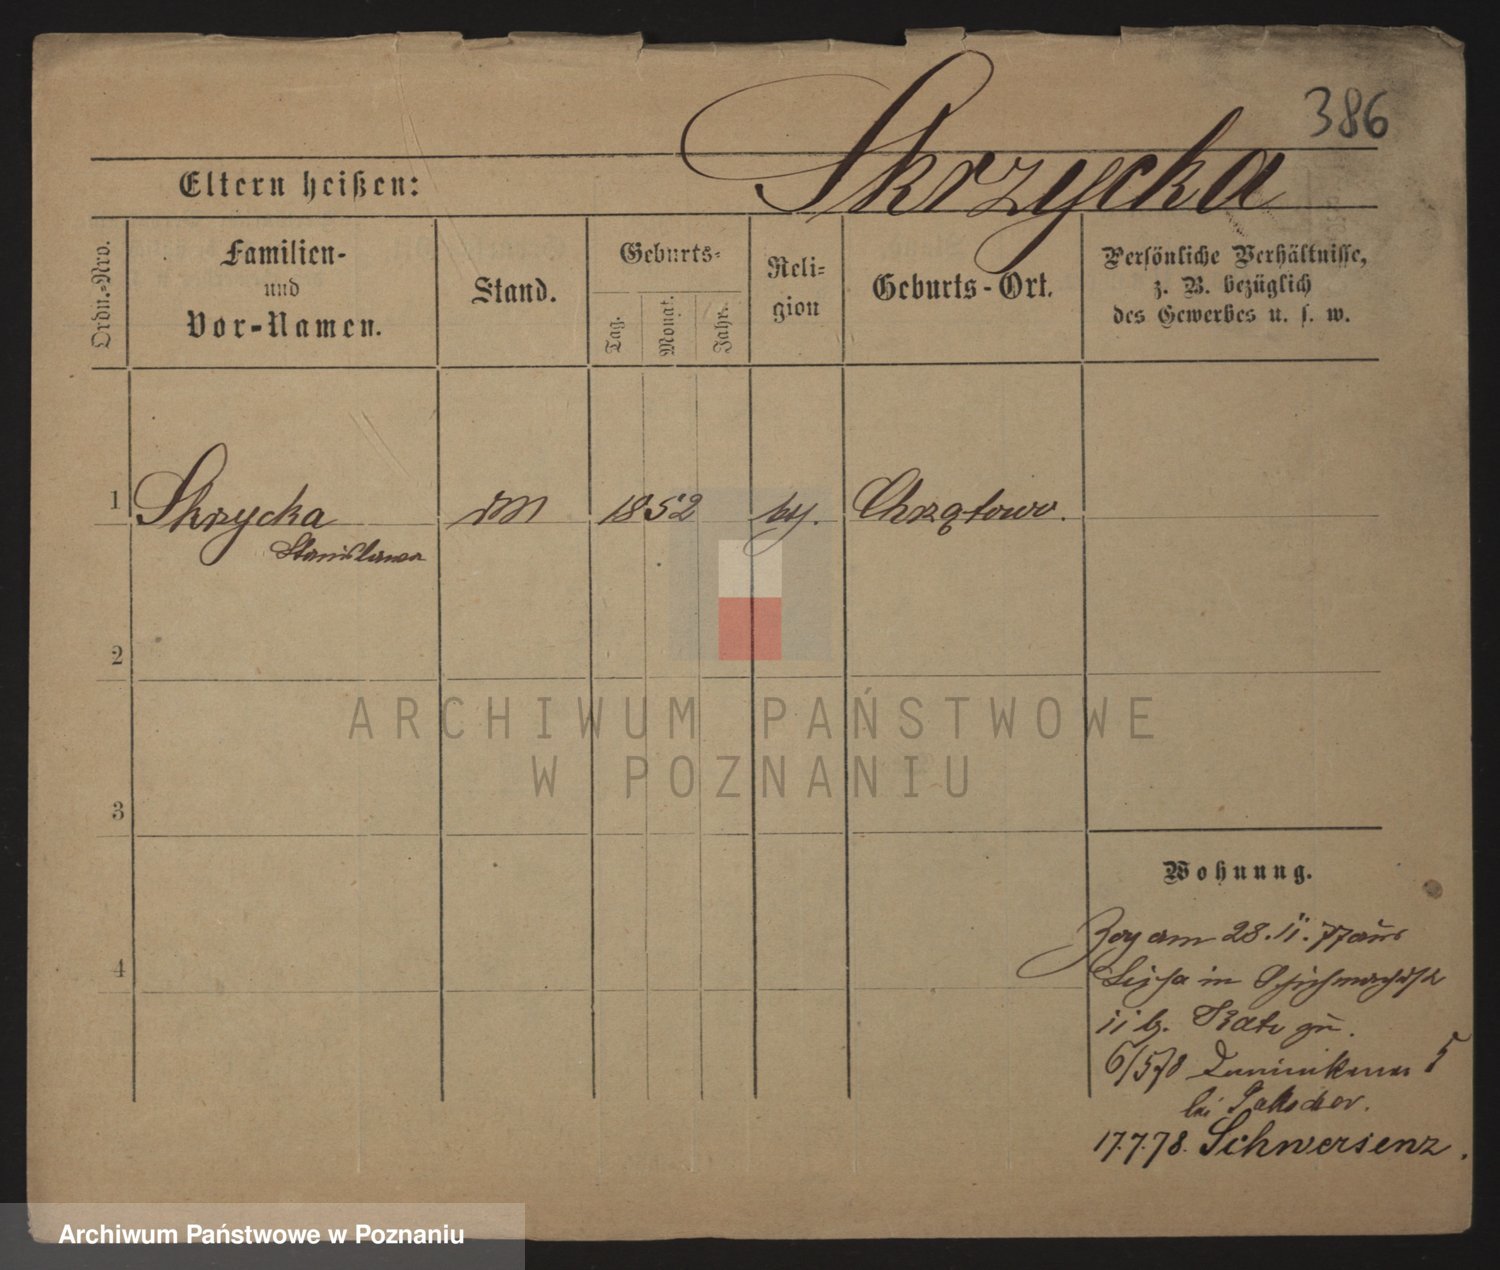 386
Skrzycka
Eltern heißen:
Ordn.-Nro.
Familien-
und
Vor-Namen.
Stand.
Geburts-
Tag.
Monat.
Jahr.
Reli-
gion
Geburts-Ort.
Persönliche Verhältnisse,
z. B. bezüglich
des Gewerbes u. s. w.
1
Skrzycka
M
1852
Chrzątowo.
Stanislawa
2
ARCHIWUM PAŃSTWOWE
W POZNANIU
3
Wohnung.
4
Zog am 28.11.77 aus
in
11 b. zu.
6/5 78 Dominikaner 5
bei
17.7.78. Schwersenz.
Archiwum Państwowe w Poznaniu